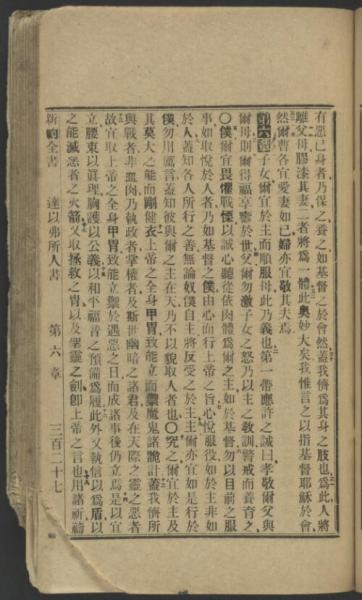 有惡己身者乃保之養之如基督之於會然蓋我儕爲其身之肢也爲此人將
離父母膠漆其妻二者將爲一體此奧妙大矣我惟言之以指基督耶穌於會
然爾曹各宜愛妻如己婦亦宜敬其夫焉
第六章子女爾宜於主而順服母此乃義也第一帶應許之誡曰孝敬爾父與
爾母則爾得福享壽於世父爾勿激子女之怒乃以主之教訓警戒而養育之
〇僕爾宜畏懼戰慄以誠心聽從依肉體爲爾之主如於基督勿以目前之服
事如取悅於人者乃如基督之僕由心而行上帝之旨心悅服役如於主非如
於人蓋知各人所行之善無論奴僕自主將反受之於主主爾亦宜如是行於
僕勿用厲言蓋知彼與爾之主在天乃不以貌取人者也〇究之爾宜於主及
其莫大之能而剛健衣上帝之全身甲胄致能立而禦魔鬼諸詭計蓋我儕所
與戰者非血肉乃執政者掌權者及斯世幽暗之諸君及在天際之靈之惡者
故宜取上帝之全身甲胄致能立禦於遇惡之日而成諸事後仍立焉是以宜
立腰束以眞理胸護以公義以和平福音之預備爲履此外又執信以爲盾以
之能滅惡者之火箭又取拯救之胄以及聖靈之劍卽上帝之言也用諸祈禱
新約全書 達以弗所人書 第六章 三百二十七